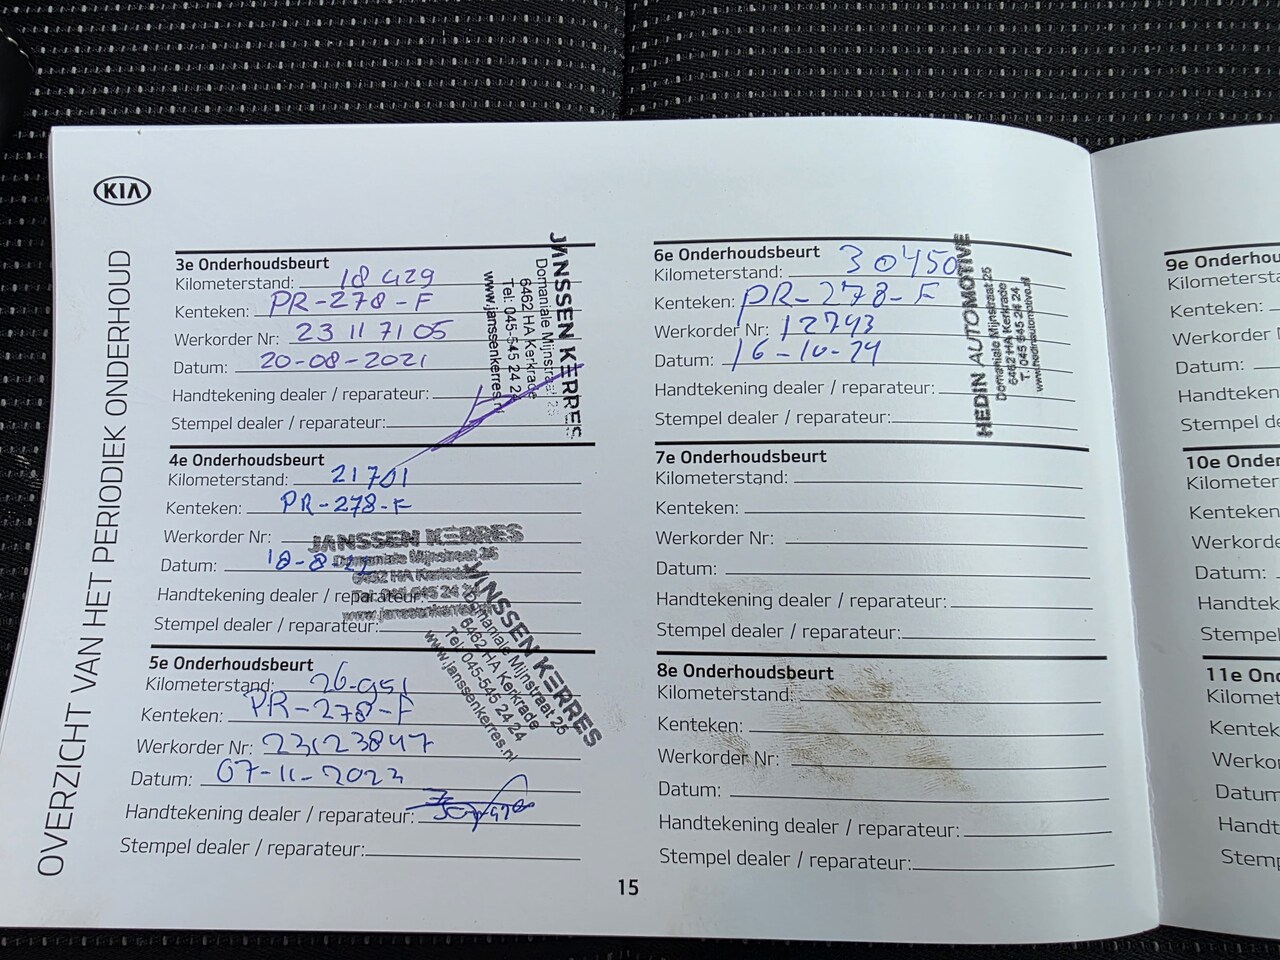 KIA
OVERZICHT VAN HET PERIODIEK ONDERHOUD
3e Onderhoudsbeurt
Kilometerstand: 18429
Kenteken: PR-278-F
Werkorder Nr: 23117105
Datum: 20-08-2021
Handtekening dealer / reparateur:
Stempel dealer / reparateur:
JANSSEN KERRES
Domaniale Mijnstraat 25
6462 HA Kerkrade
Tel: 045-545 24 24
www.janssenkerres.nl
4e Onderhoudsbeurt
Kilometerstand: 21701
Kenteken: PR-278-F
Werkorder Nr:
Datum: 18-8-22
Handtekening dealer / reparateur:
Stempel dealer / reparateur:
JANSSEN KERRES
Domaniale Mijnstraat 25
6462 HA Kerkrade
Tel: 045-545 24 24
www.janssenkerres.nl
5e Onderhoudsbeurt
Kilometerstand: 26-951
Kenteken: PR-278-F
Werkorder Nr: 23123847
Datum: 07-11-2023
Handtekening dealer / reparateur:
Stempel dealer / reparateur:
JANSSEN KERRES
Domaniale Mijnstraat 25
6462 HA Kerkrade
Tel: 045-545 24 24
www.janssenkerres.nl
6e Onderhoudsbeurt
Kilometerstand: 30450
Kenteken: PR-278-F
Werkorder Nr: 12743
Datum: 16-10-24
Handtekening dealer / reparateur:
Stempel dealer / reparateur:
HEDIN AUTOMOTIVE
Domaniale Mijnstraat 25
6462 HA Kerkrade
T. 045 545 24 24
www.hedinautomotive.nl
7e Onderhoudsbeurt
Kilometerstand:
Kenteken:
Werkorder Nr:
Datum:
Handtekening dealer / reparateur:
Stempel dealer / reparateur:
8e Onderhoudsbeurt
Kilometerstand:
Kenteken:
Werkorder Nr:
Datum:
Handtekening dealer / reparateur:
Stempel dealer / reparateur:
15
9e Onderhou
Kilometersta
Kenteken:
Werkorder
Datum:
Handteken
Stempel de
10e Onder
Kilometer
Kenteken
Werkorde
Datum:
Handtek
Stempel
11e Ond
Kilomet
Kentek
Werko
Datum
Handt
Stemp